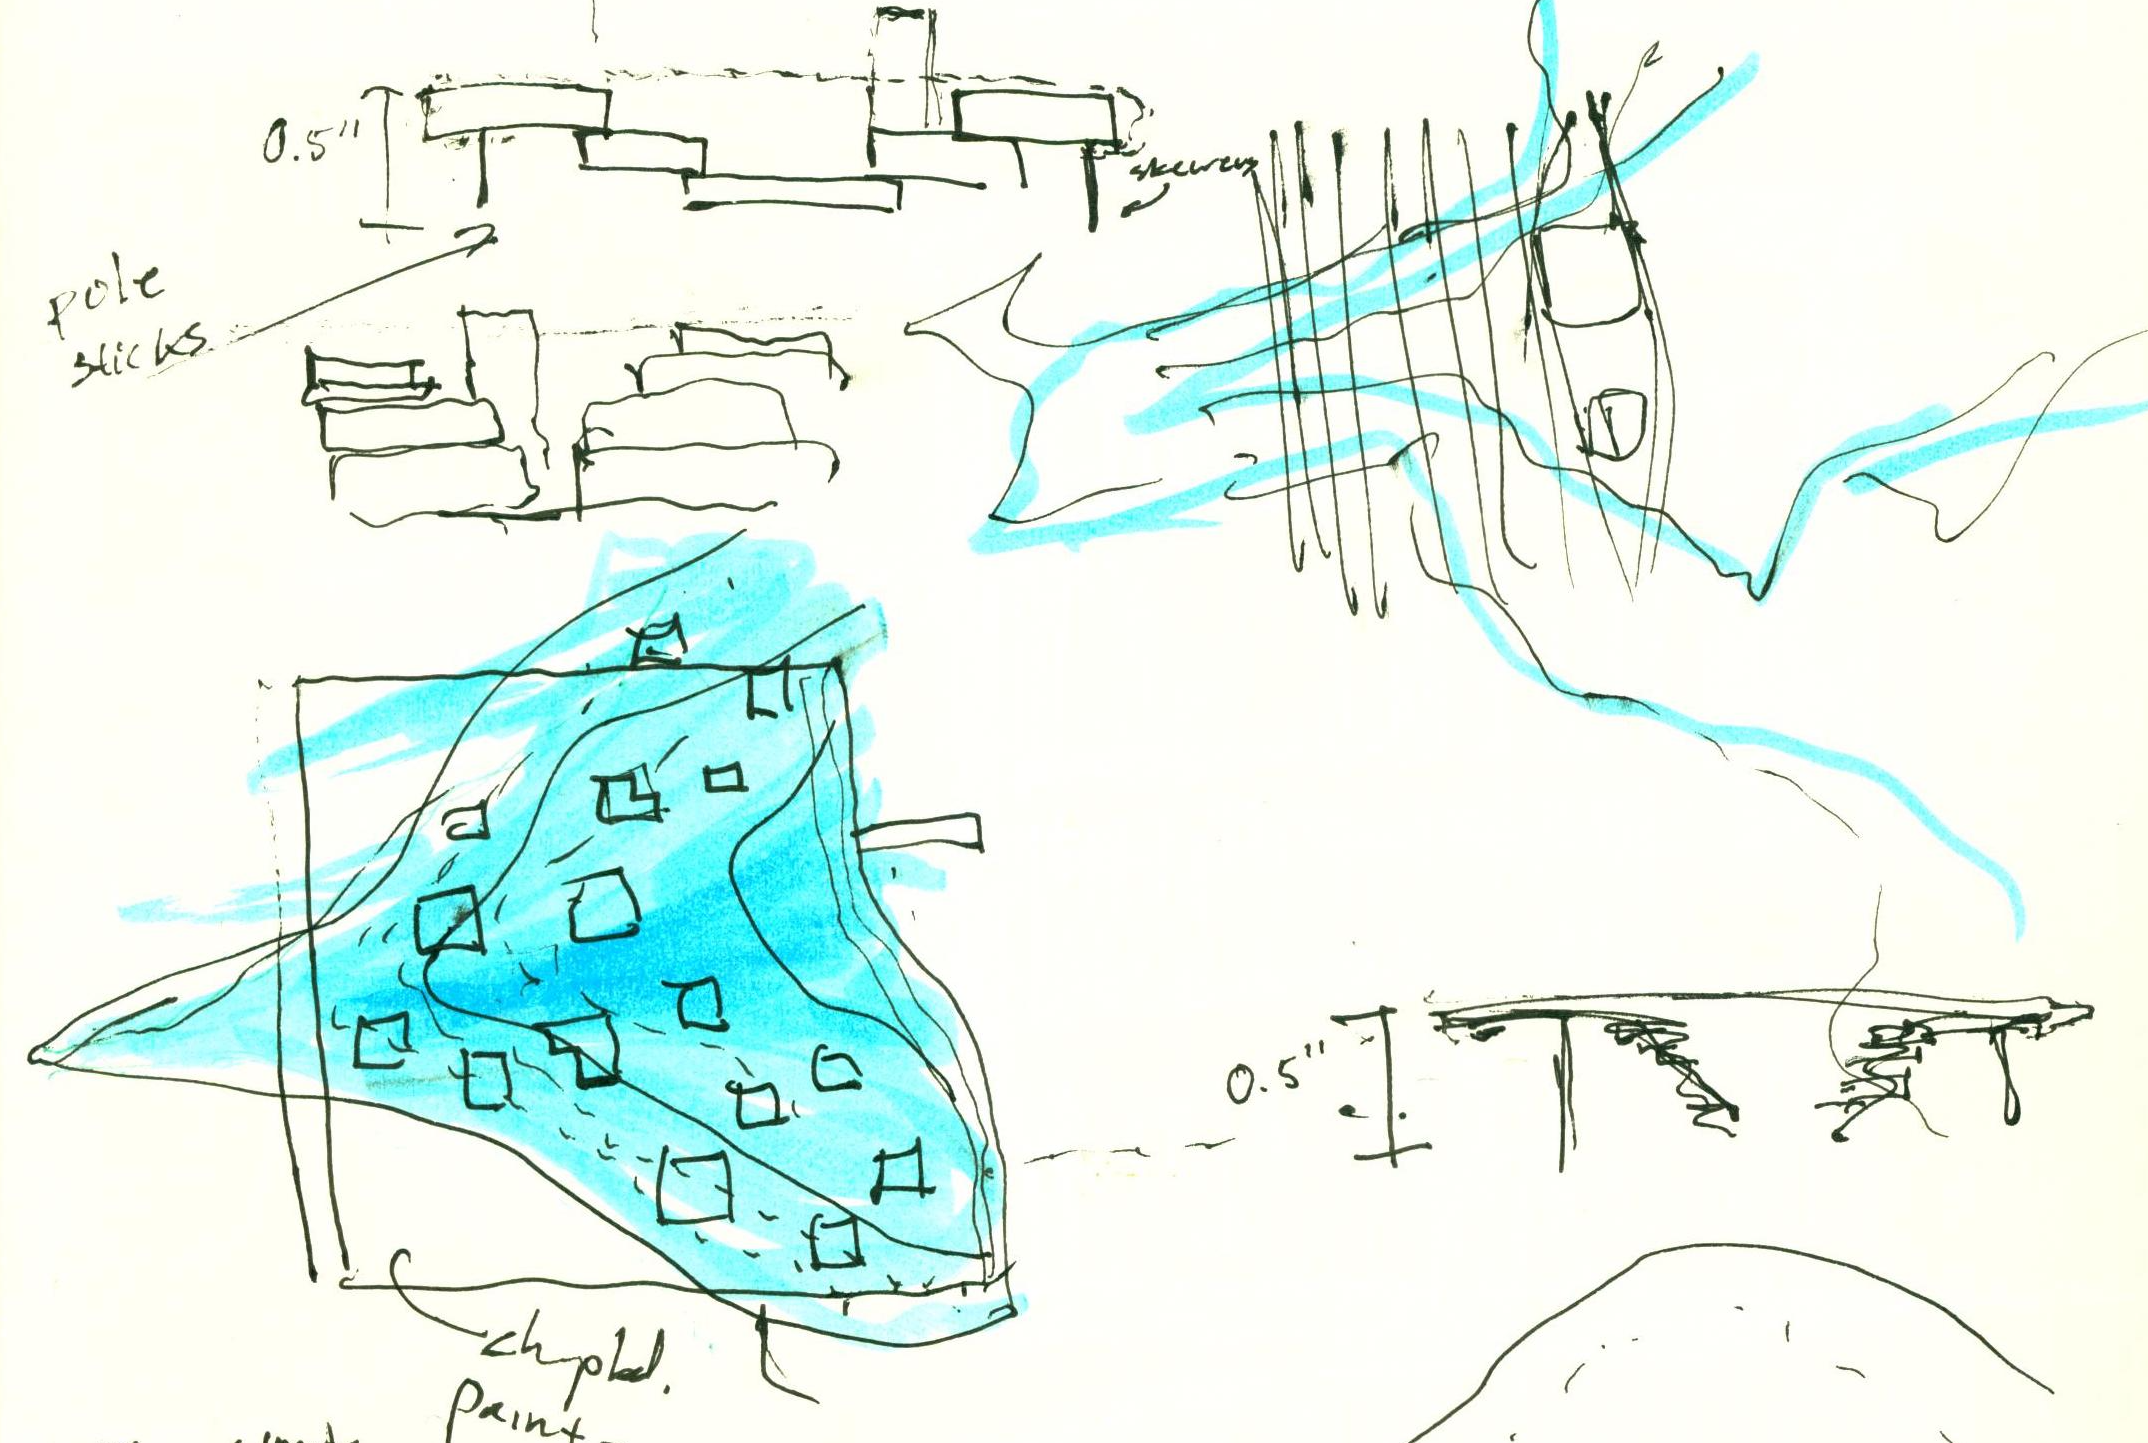 0.5"
skewers
pole
sticks
0.5"
paint